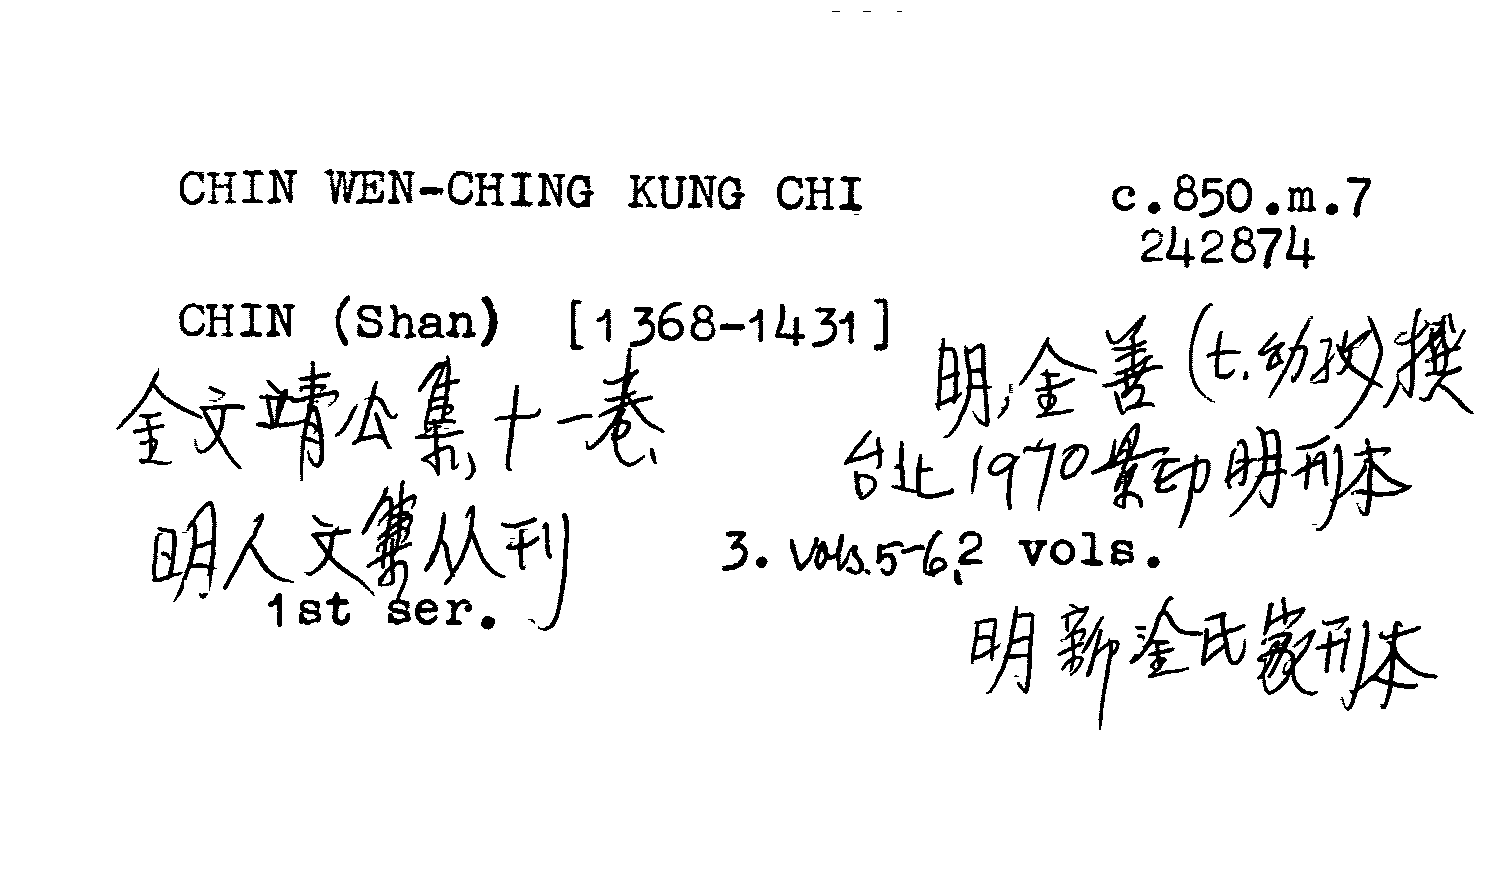 CHIN WEN-CHING KUNG CHI
c.850.m.7
242874
CHIN (Shan) [1368-1431]
金文靖公集, 十一卷
明, 金善 (t. 幼孜) 撰
台北 1970 景印明刊本
明人文集从刊
1st ser.
3. vols. 5-6, 2 vols.
明 新淦金氏家刊本